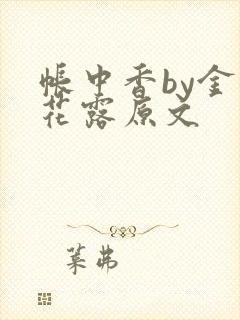 帐中香by金
花露原文
叶弗